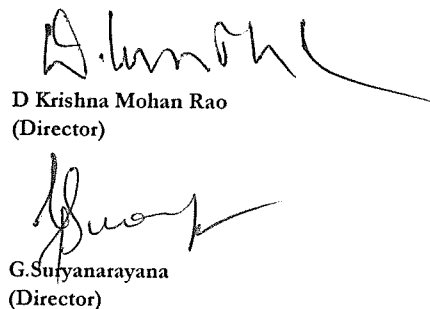 D Krishna Mohan Rao
(Director)
G.Suryanarayana
(Director)